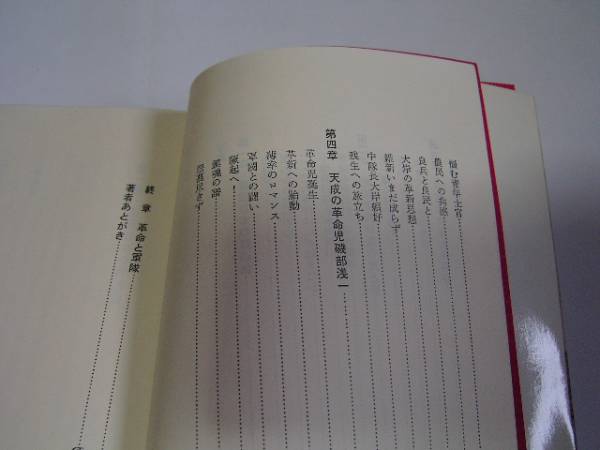 悩む青年士官
農民への共感
良兵と良民と
大岸の革新思想
維新いまだ成らず
中隊長大岸頼好
残生への旅立ち
第四章 天成の革命児磯部浅一
革命児誕生
革新への胎動
薄幸のロマンス
軍閥との闘い
蹶起へ！
霊魂の
尽きず
終章 革命と軍隊
著者あとがき